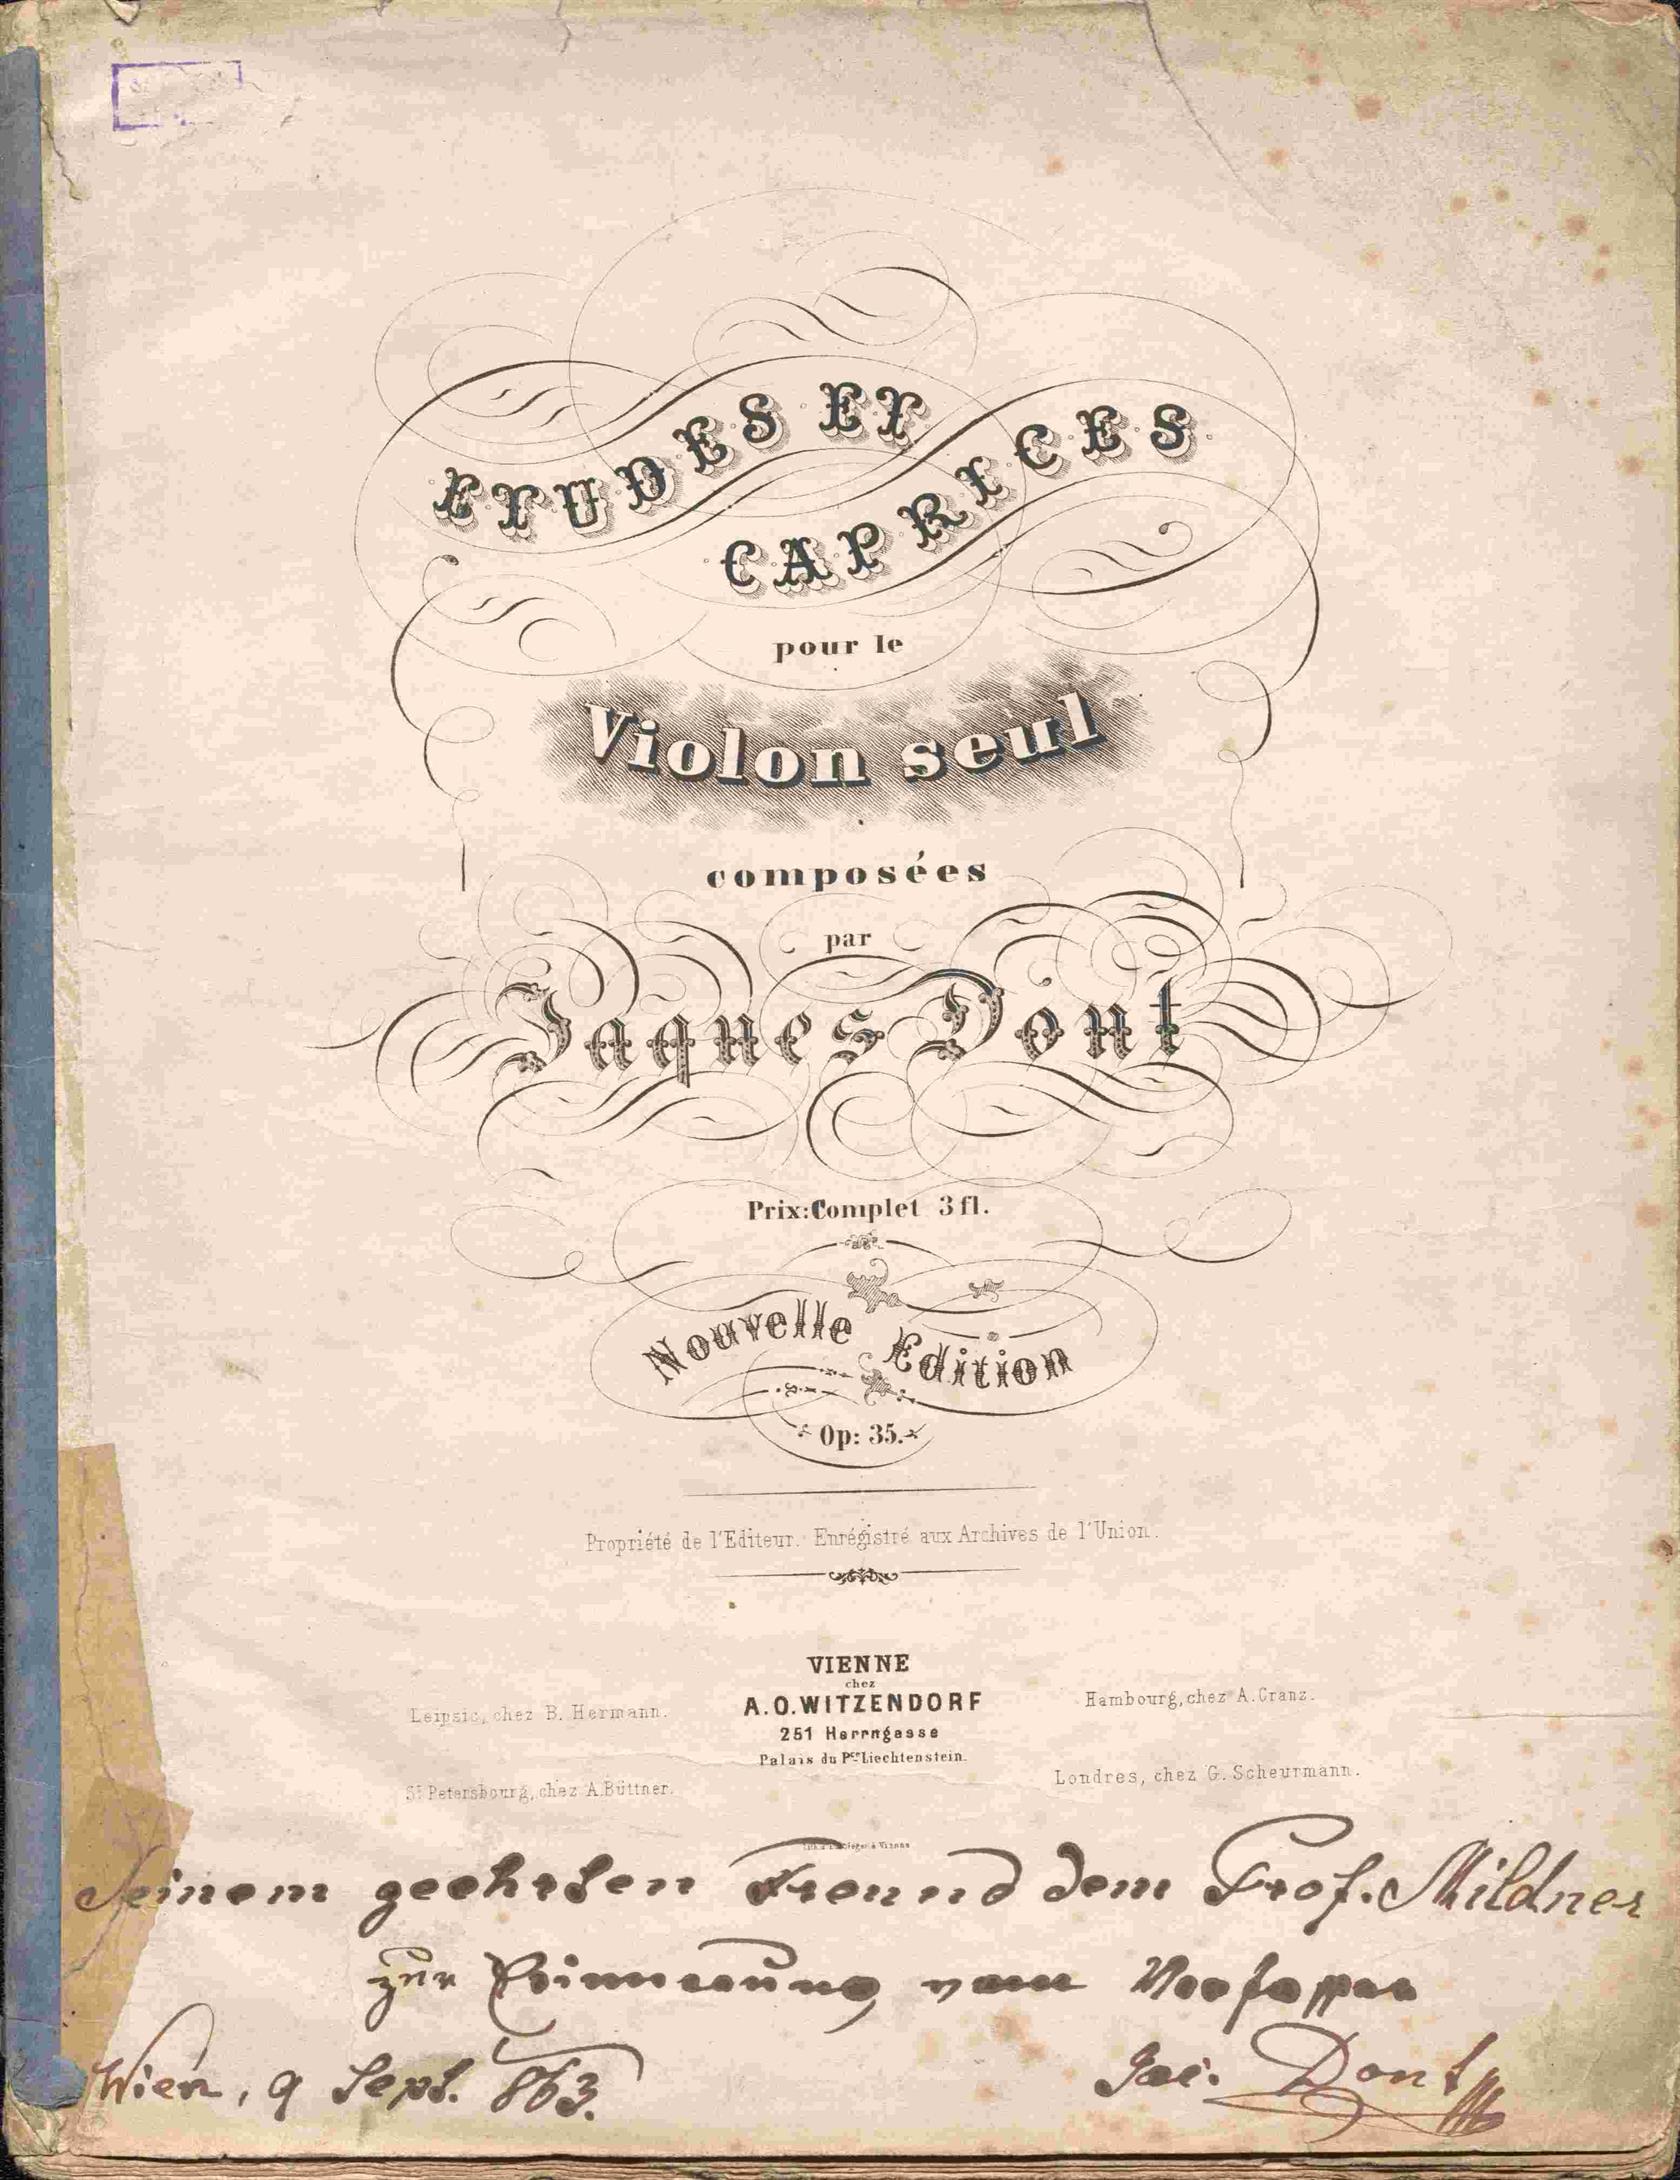 ETUDES ET
CAPRICES
pour le
Violon seul
composées
par
Jaques Dont
Prix: Complet 3 fl.
Nouvelle Edition
Op: 35.
Propriété de l'Editeur. Enrégistré aux Archives de l'Union.
VIENNE
chez
A.O. WITZENDORF
251 Herrngasse
Palais du Pce Liechtenstein.
Leipsic, chez B. Hermann.
Hambourg, chez A. Cranz.
St Petersbourg, chez A. Büttner.
Londres, chez G. Scheurmann.
Seinem geehrten Freund dem Prof. Mildner
zur Erinnerung vom Verfasser
Wien, 9 Sept. 863.
Jac. Dont